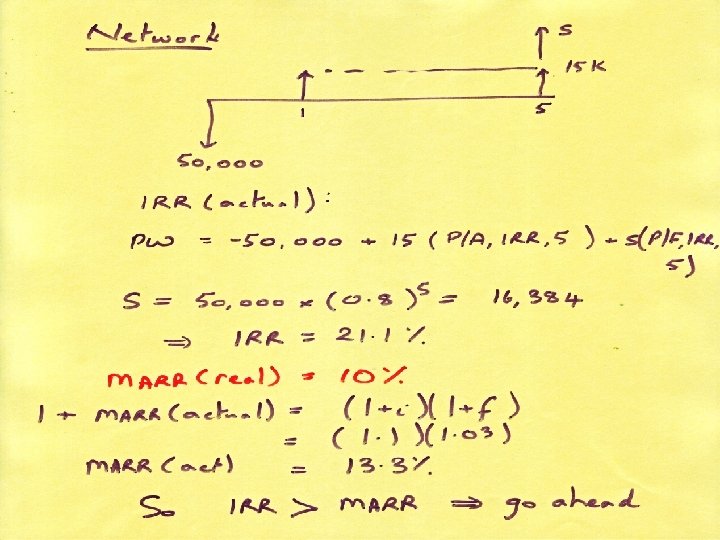 Network
S
15K
1
5
50,000
IRR (actual) :
PW = -50,000 + 15 (P/A, IRR, 5 ) + S(P/F, IRR,
5)
S = 50,000 × (0.8)^5 = 16,384
⇒ IRR = 21.1 %
MARR (real) = 10%
1 + MARR (actual) = (1+i)(1+f)
= (1.1)(1.03)
MARR (act) = 13.3%
So IRR > MARR ⇒ go ahead